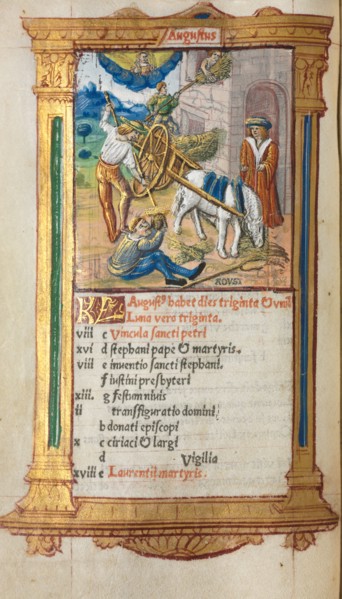 Augustus
AOUST
KL Augustꝰ habet dies triginta & vnū
Luna vero triginta.
viii c Vincula sancti petri
xvi d stephani pape & martyris.
viii e inuentio sancti stephani.
f iustini presbyteri
xiii. g festum niuis
ii transfiguratio domini
b donati episcopi
x c ciriaci & largi
d Vigilia
xviii e Laurentii martyris.